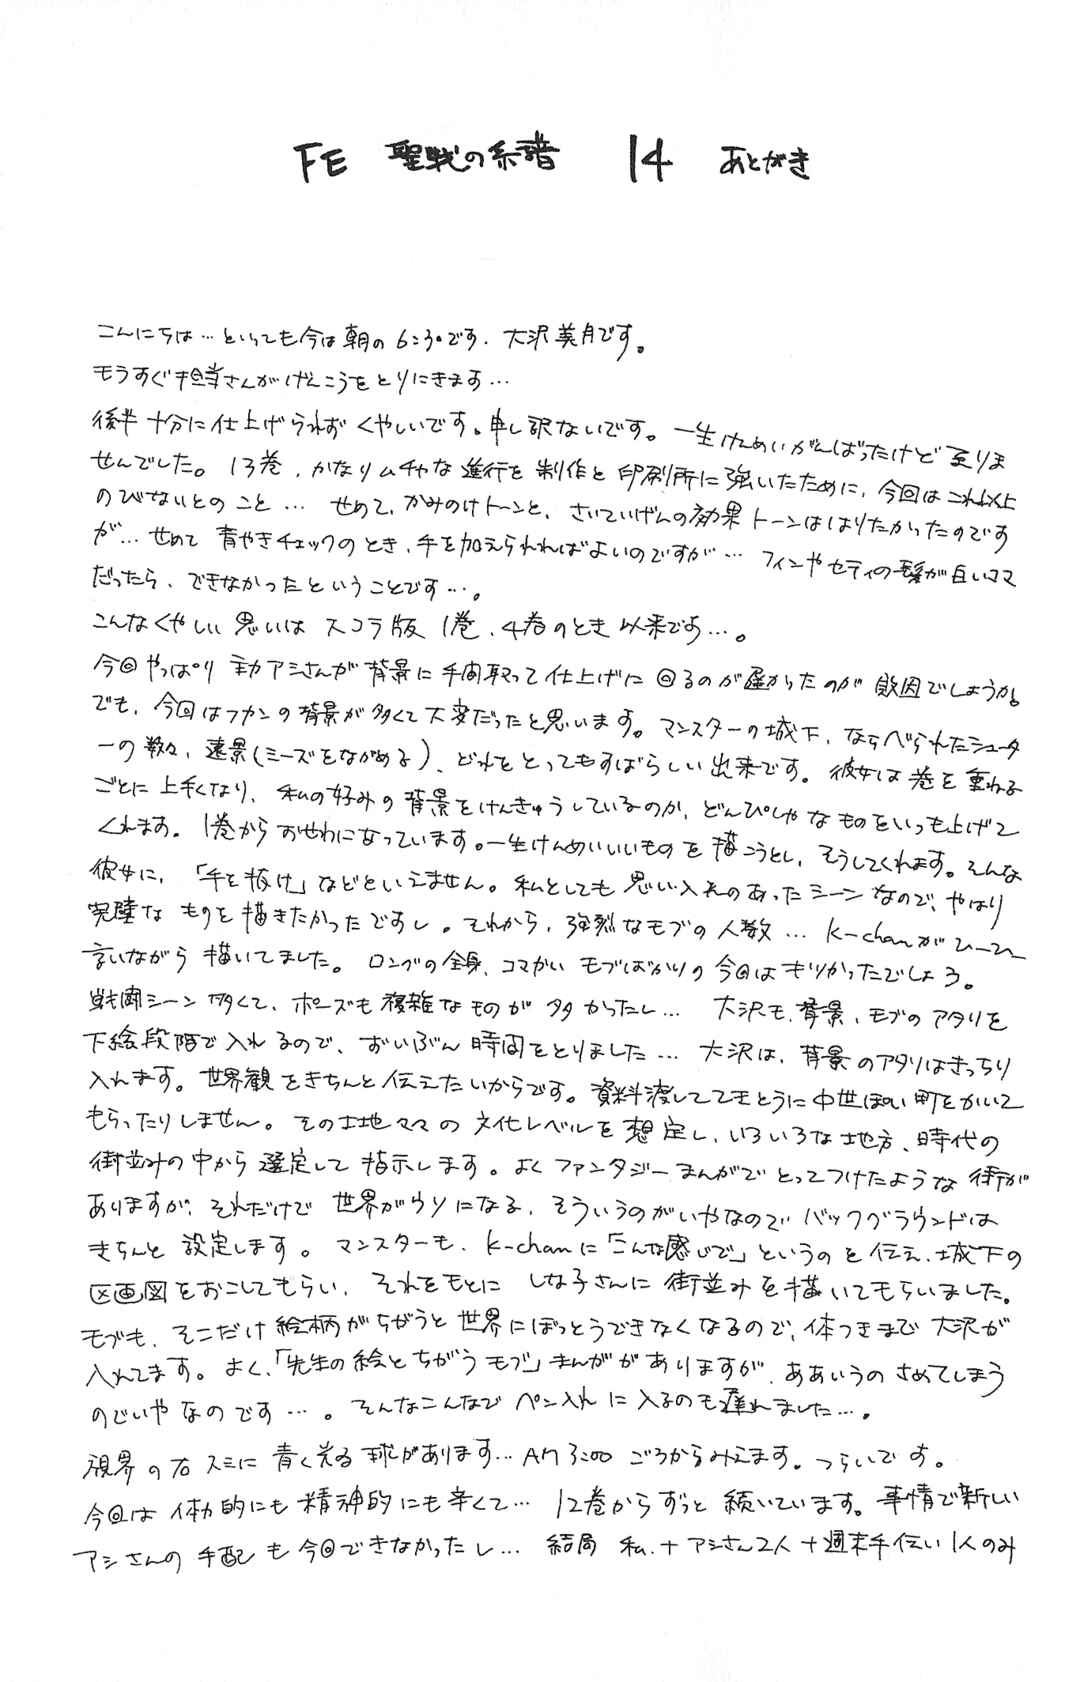 FE 聖戦の系譜 14 あとがき
こんにちは…といっても今は朝の6:30です. 大沢美月です。
モうすぐ担当さんがげんこうをとりにきます…
後半 十分に仕上げられず くやしいです。申し訳ないです。一生けんめいがんばったけど至りま
せんでした。13巻、かなりムチャな進行を制作と印刷所に強いたために、今回はこれ以上
のびないとのこと… せめて、かみのけトーンと、さいていげんの効果トーンははりたかったのです
が…せめて 青やきチェックのとき、手を加えられればよいのですが… フィンやセティの髪が白いママ
だったら、できなかったということです…。
こんなくやしい思いは スコラ版 1巻、4巻のとき以来です…。
今回やっぱり 主力アシさんが背景に手間取って仕上げに回るのが遅かったのが 敗因でしょうか。
でも、今回はフカンの背景が多くて大変だったと思います。マンスターの城下、ならべられたシュータ
ーの数々、遠景(ミーズをながめる)、どれをとってもすばらしい出来です。彼女は巻を重ねる
ごとに上手くなり、私の好みの背景をけんきゅうしているのか、どんぴしゃなものをいつも上げて
くれます。1巻からおせわになっています。一生けんめいいいものを描こうとし、そうしてくれます。そんな
彼女に、「手を抜け」などといえません。私としても思い入れのあったシーンなので、やはり
完璧なものを描きたかったですし。それから、強烈なモブの人数… K-chanがひーひー
言いながら描いてました。ロングの全身、コマかいモブばかりの今回はキツかったでしょう。
戦闘シーン多くて、ポーズも複雑なものが多かったし… 大沢も、背景、モブのアタリを
下絵段階で入れるので、ずいぶん時間をとりました… 大沢は、背景のアタリはきっちり
入れます。世界観をきちんと伝えたいからです。資料渡しててきとうに中世ぽい町をかいて
もらったりしません。その土地ママの文化レベルを想定し、いろいろな地方、時代の
街並みの中から選定して指示します。よくファンタジーまんがでとってつけたような街が
ありますが、それだけで世界がウソになる、そういうのがいやなのでバックグラウンドは
きちんと設定します。マンスターも、K-chanに「こんな感じで」というのを伝え、城下の
区画図をおこしてもらい、それをもとに しな子さんに街並みを描いてもらいました。
モブも、そこだけ絵柄がちがうと世界にぼっとうできなくなるので、体つきまで大沢が
入れてます。よく、「先生の絵とちがうモブ」まんががありますが、ああいうのさめてしまう
のでいやなのです…。そんなこんなで ペン入れに入るのも遅れました…。
視界の右スミに青く光る球があります…AM3:00ごろからみえます。つらいです。
今回は体力的にも精神的にも辛くて… 12巻からずっと続いています。事情で新しい
アシさんの手配も今回できなかったし… 結局 私.+アシさん2人+週末手伝い1人のみ